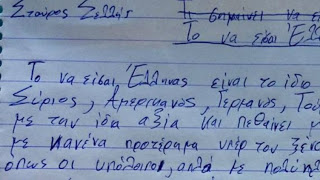 Σταύρος Σελλής
Τι σημαίνει να ε
Το να είσαι Έλλ
Το να είσαι Έλληνας είναι το ίδιο
Σύριος, Αμερικανός, Γερμανός, Τού
με την ίδια αξία και πεθαίνει
με κανένα προτέρημα υπέρ του ξένο
όπως οι υπόλοιποι, απλά με